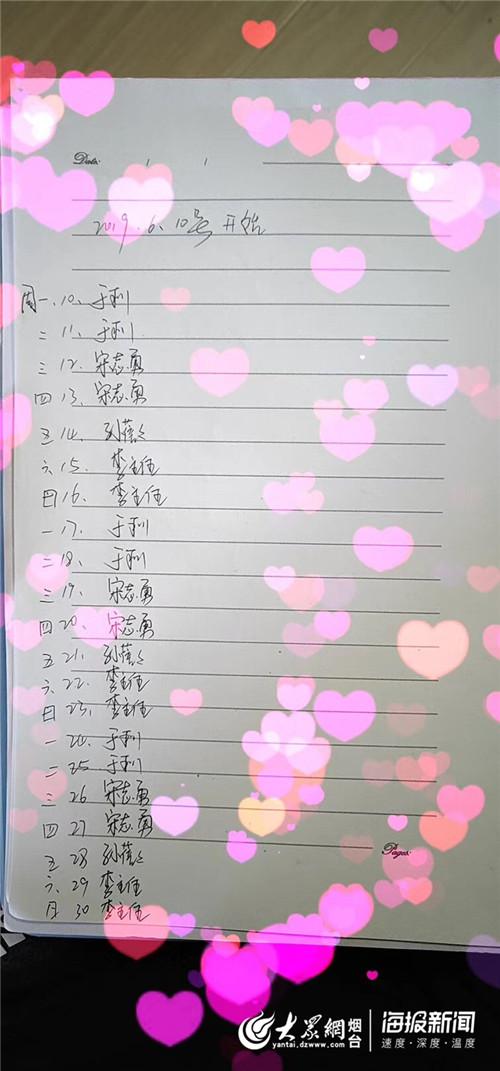 Date:
2019.6.10号开始
周一.10、于利
二11、于利
三12、宋志勇
四13、宋志勇
五14、
六15、李主任
日16、李主任
一17、于利
二18、于利
三19、宋志勇
四20、宋志勇
五21、
六22、李主任
日23、李主任
一24、于利
二25、于利
三26宋志勇
四27宋志勇
五28
六29李主任
日30李主任
Pages:
大眾網 烟台 海报新闻
yantai.dzwww.com 速度·深度·温度